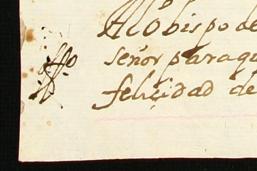 Al Obispo de
señor paraq
felicidad de